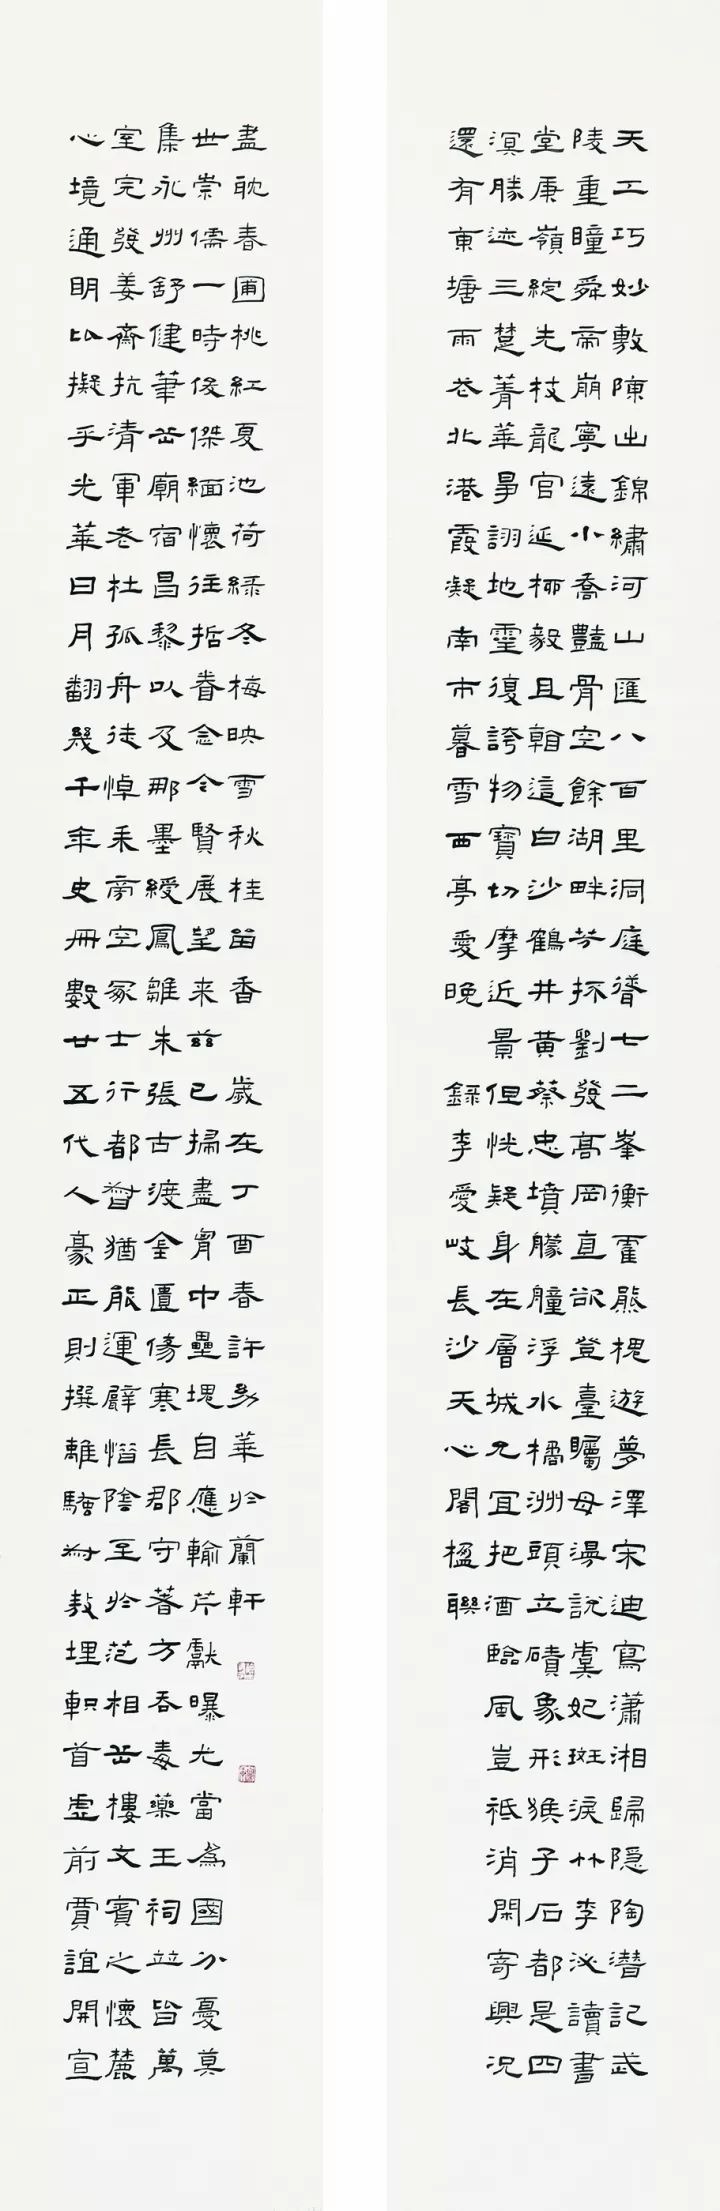 天工巧妙敷陳出錦繡河山匯八百里洞庭聳七二峯衡霍熊槐遊夢澤宋迪寫瀟湘歸隱陶潛記武
陵重瞳舜帝崩寧遠小喬豔骨空餘湖畔芳抔劉發高岡直欲登臺矚母漫說虞妃斑淚竹李泌讀書
堂庚嶺綻先枝龍官延柳毅且翱這白沙鶴井黃蔡忠墳艨艟浮水橘洲頭立磧象形猴子石都是四
溟勝迹三楚菁華爭詡地靈復誇物寶切摩近景但恍疑身在層城尤宜把酒臨風豈祇消閑寄興況
還有東塘雨花北港霞凝南市暮雪西亭愛晚
錄李愛岐長沙天心閣楹聯
心境通明比擬乎光華日月翻幾千年史冊數廿五代人豪正則撰離騷為敖埋軹首虛前賈誼開宣
室完發姜齋抗清軍老杜孤舟徒悼乘帝空冢士行都督猶能運甓惜陰至於范相岳樓文賓之懷麓
集永州舒健筆岳廟宿昌黎以及那墨綬鳳雛朱張古渡金匱傷寒長郡守著方吞毒藥王祠並皆萬
世崇儒一時俊傑緬懷往哲眷念今賢展望來茲已掃盡胸中壘塊自應輸芹獻曝尤當為國分憂莫
盡耽春圃桃紅夏池荷綠冬梅映雪秋桂留香
歲在丁酉春許華於蘭軒